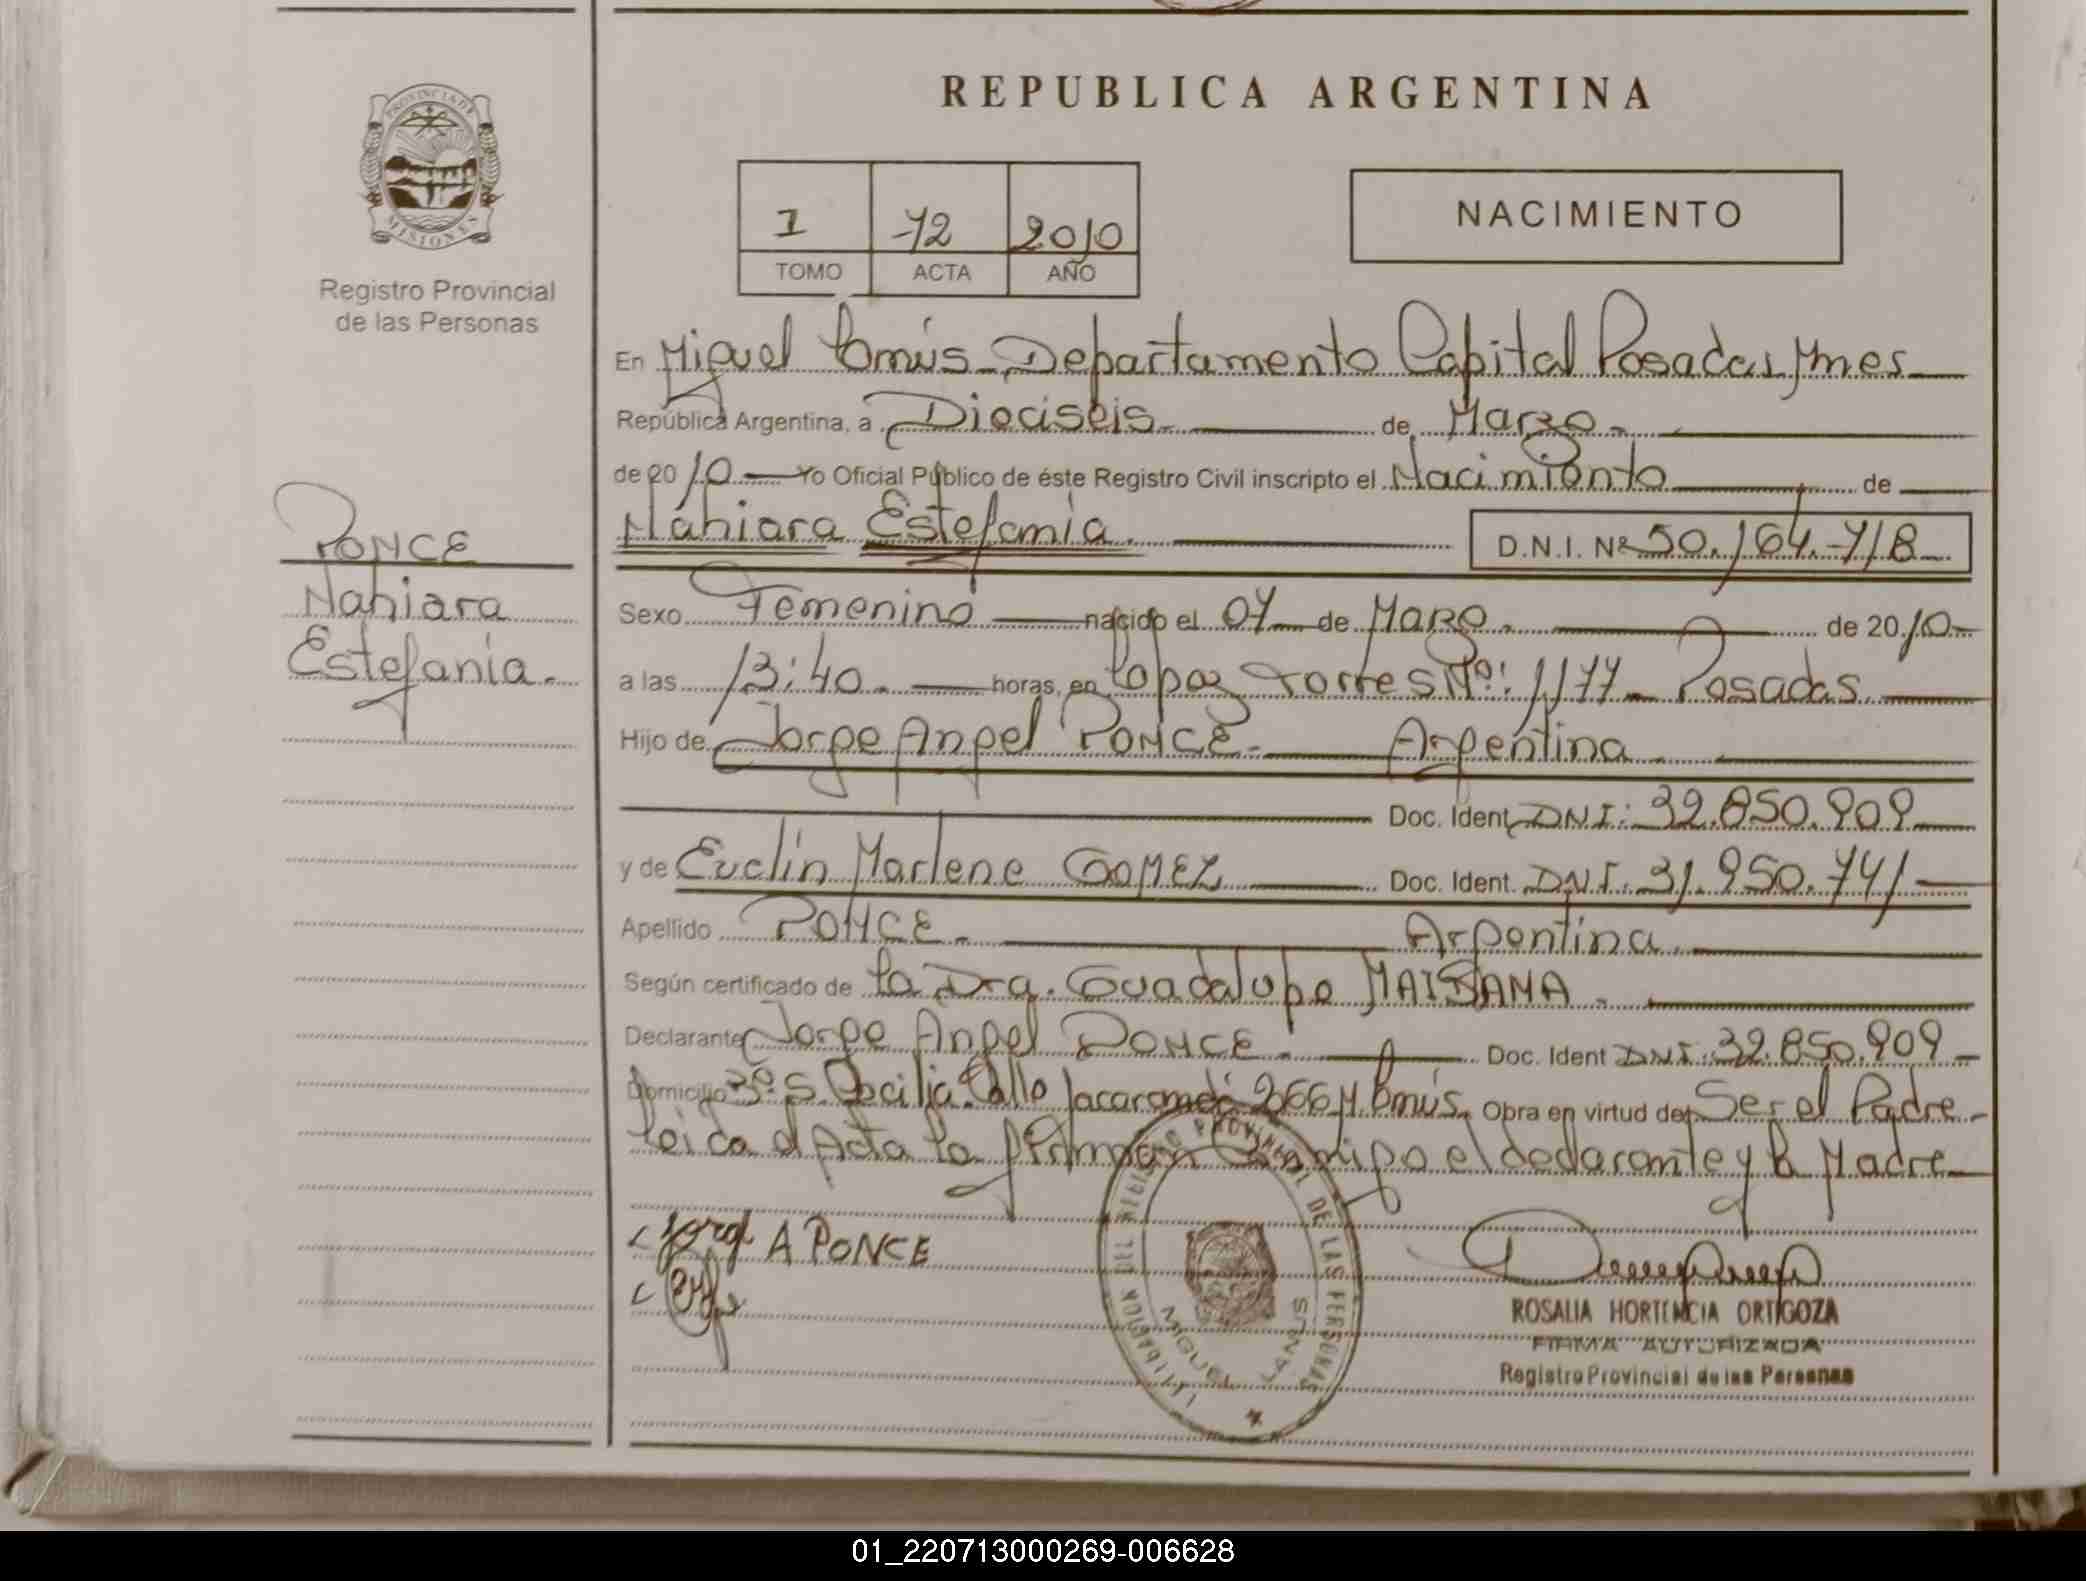 REPUBLICA ARGENTINA
PROVINCIA DE
MISIONES
Registro Provincial
de las Personas
1 72 2010
TOMO ACTA AÑO
NACIMIENTO
En Miguel Lanús Departamento Capital Posadas Mnes
República Argentina, a Dieciseis de Marzo
de 2010 Yo Oficial Público de éste Registro Civil inscripto el Nacimiento de
Nahiara Estefanía. D.N.I. Nº 50.164.718
PONCE
Nahiara
Estefanía.
Sexo Femenino nacido el 07 de Marzo. de 2010
a las 13:40. horas, en Lopez Torres Nº: 1177 Posadas.
Hijo de Jorge Angel PONCE Argentina
Doc. Ident DNI: 32.850.909
y de Evelin Marlene GOMEZ Doc. Ident. DNI: 31.950.741
Apellido PONCE. Argentina.
Según certificado de la Dra. Guadalupe MAIDANA.
Declarante Jorge Angel PONCE. Doc. Ident DNI: 32.850.909
Domicilio Bº S. Cecilia Calle Jacarandá 266 M Lanús. Obra en virtud de Ser el Padre.
Leida el Acta la firman Conmigo el declarante y la Madre
Jorge A PONCE
DELEGACION DEL REGISTRO PROVINCIAL DE LAS PERSONAS
MIGUEL LANUS
ROSALIA HORTENCIA ORTIGOZA
FIRMA AUTORIZADA
Registro Provincial de las Personas
01_220713000269-006628